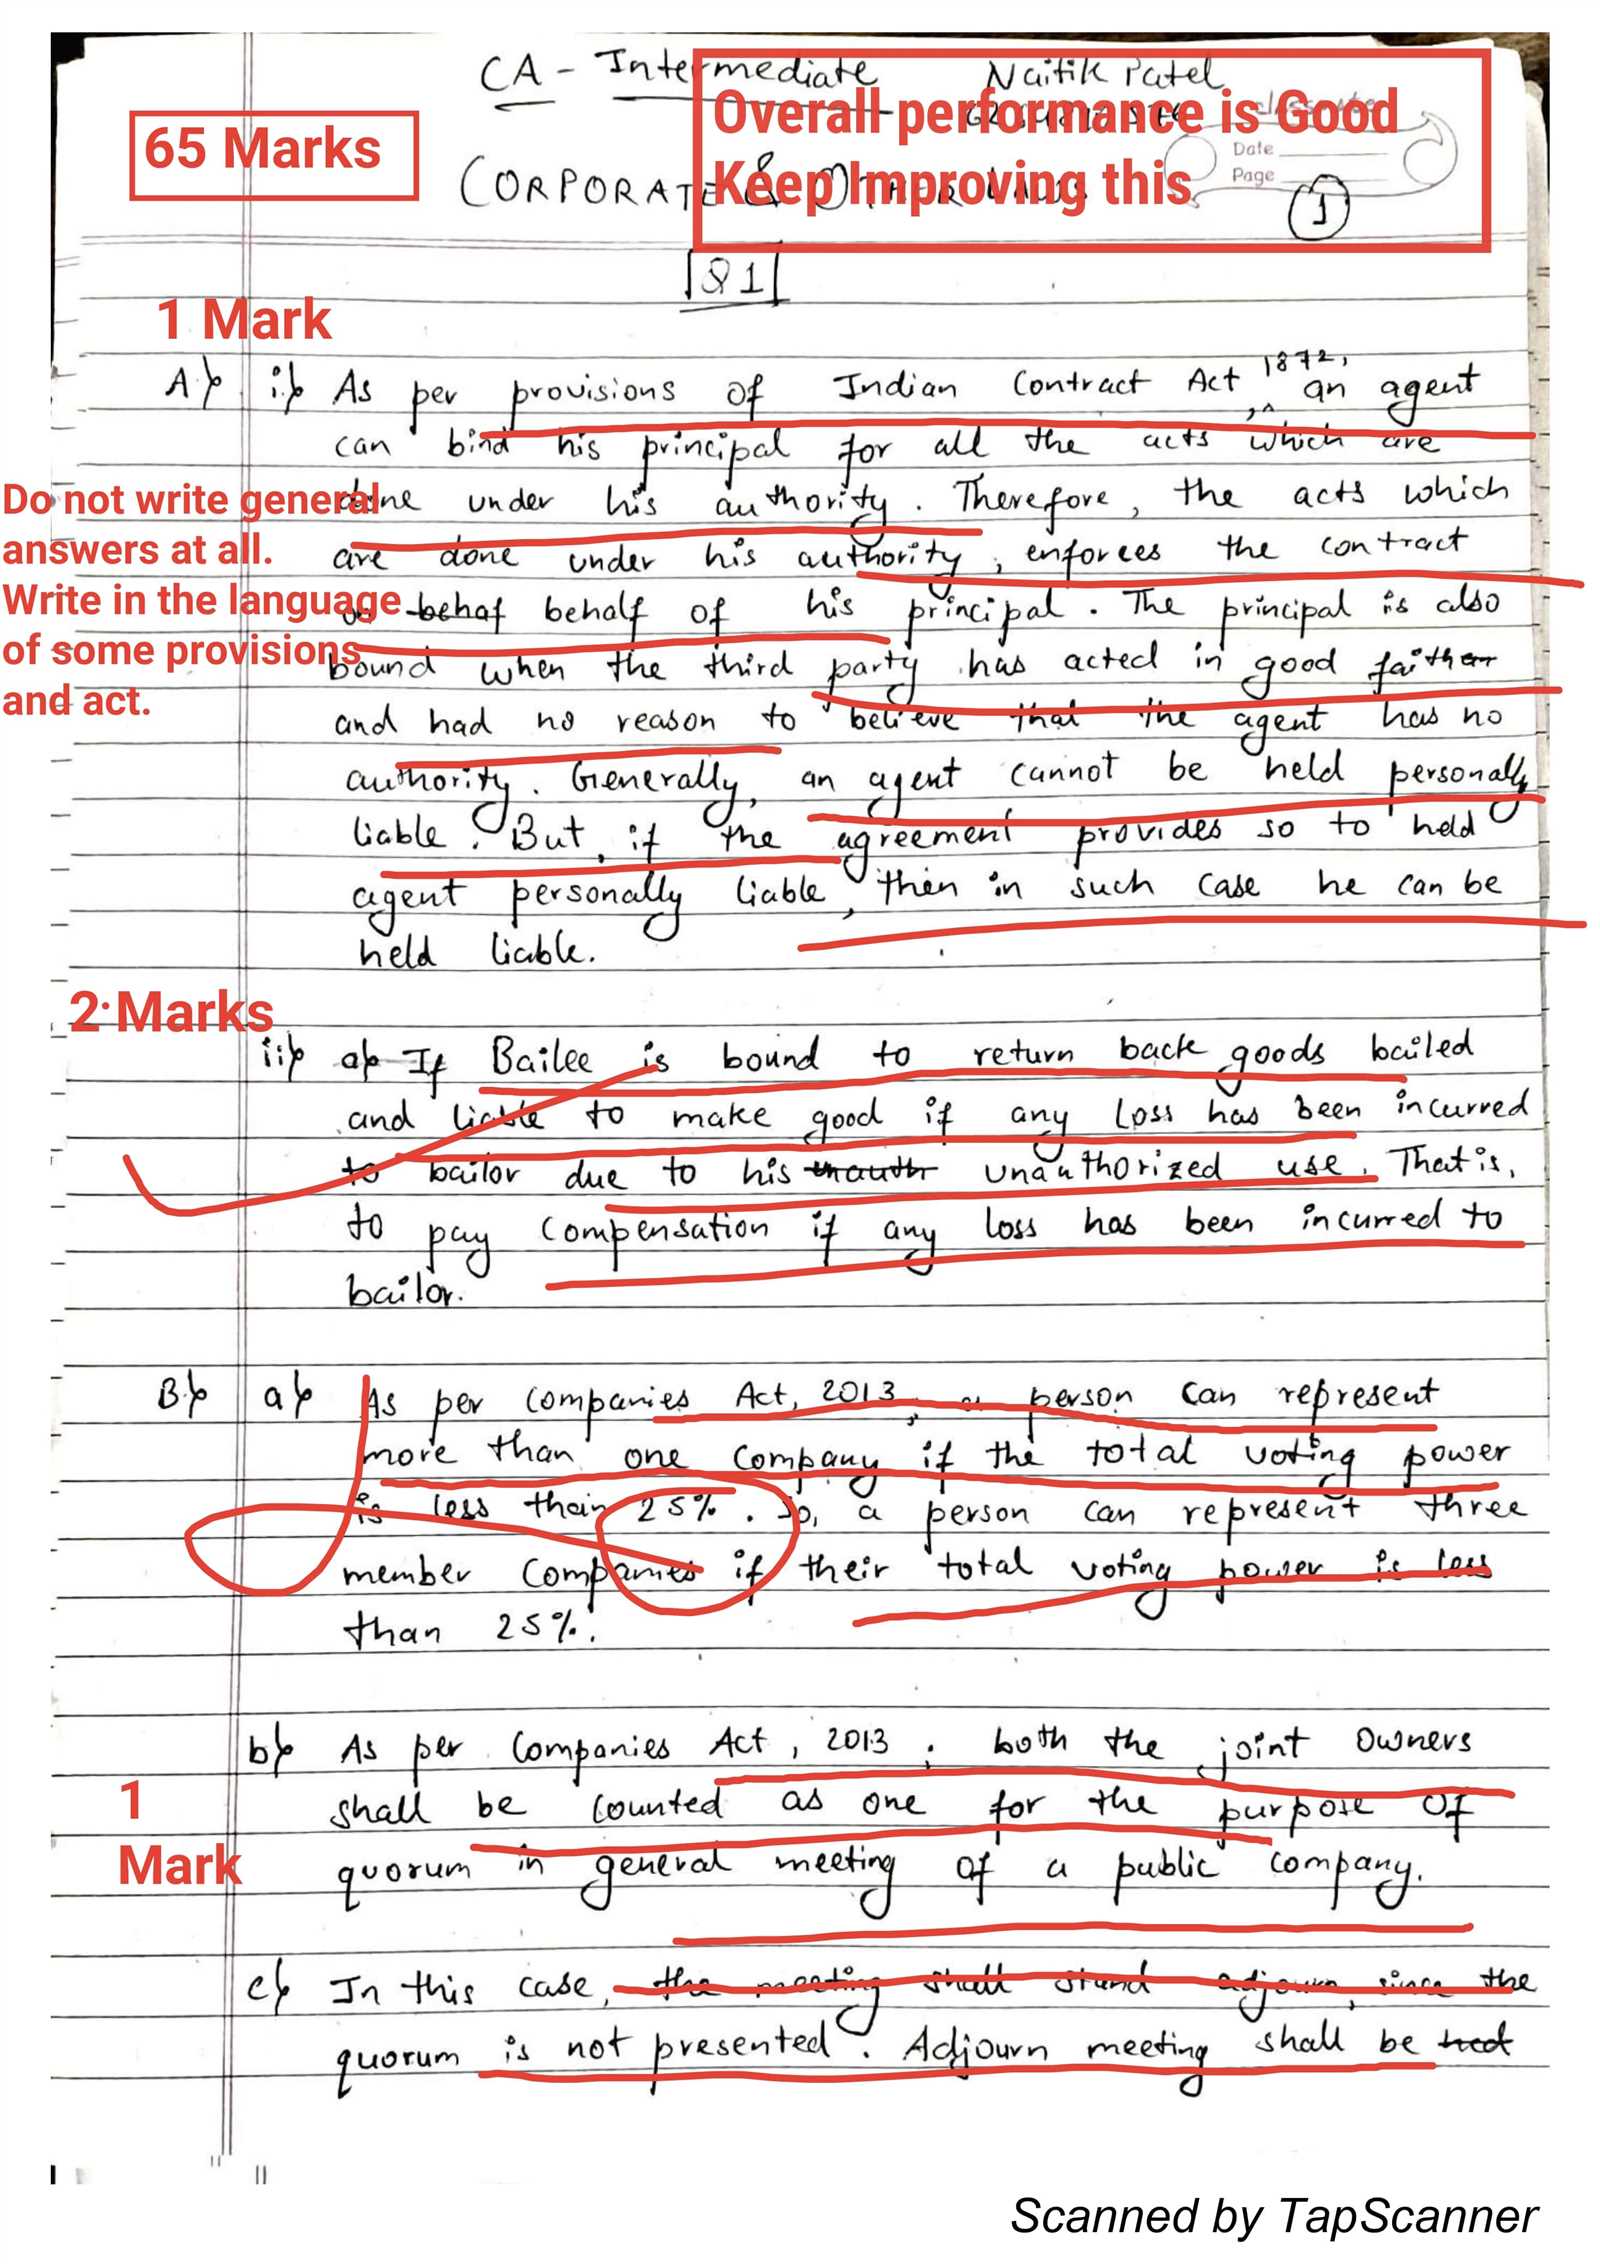 CA - Intermediate Naitik Patel
65 Marks
Overall performance is Good
Keep Improving this
classmate
Date
Page
CORPORATE & OTHER LAWS
1
Q1
1 Mark
A) i) As per provisions of Indian Contract Act, 1872, an agent
can bind his principal for all the acts which are
done under his authority. Therefore, the acts which
are done under his authority, enforces the contract
on behaf behalf of his principal. The principal is also
bound when the third party has acted in good faith
and had no reason to believe that the agent has no
authority. Generally, an agent cannot be held personally
liable. But, if the agreement provides so to held
agent personally liable, then in such case he can be
held liable.
Do not write general
answers at all.
Write in the language
of some provisions
and act.
2 Marks
ii) a) If Bailee is bound to return back goods bailed
and liable to make good if any loss has been incurred
to bailor due to his unauth unauthorized use. That is,
to pay compensation if any loss has been incurred to
bailor.
B) a) As per Companies Act, 2013, a person can represent
more than one company if the total voting power
is less than 25%. So, a person can represent three
member companies if their total voting power is less
than 25%.
b) As per Companies Act, 2013, both the joint owners
shall be counted as one for the purpose of
quorum in general meeting of a public company.
1
Mark
c) In this case, the meeting shall stand adjourn, since the
quorum is not presented. Adjourn meeting shall be
Scanned by TapScanner